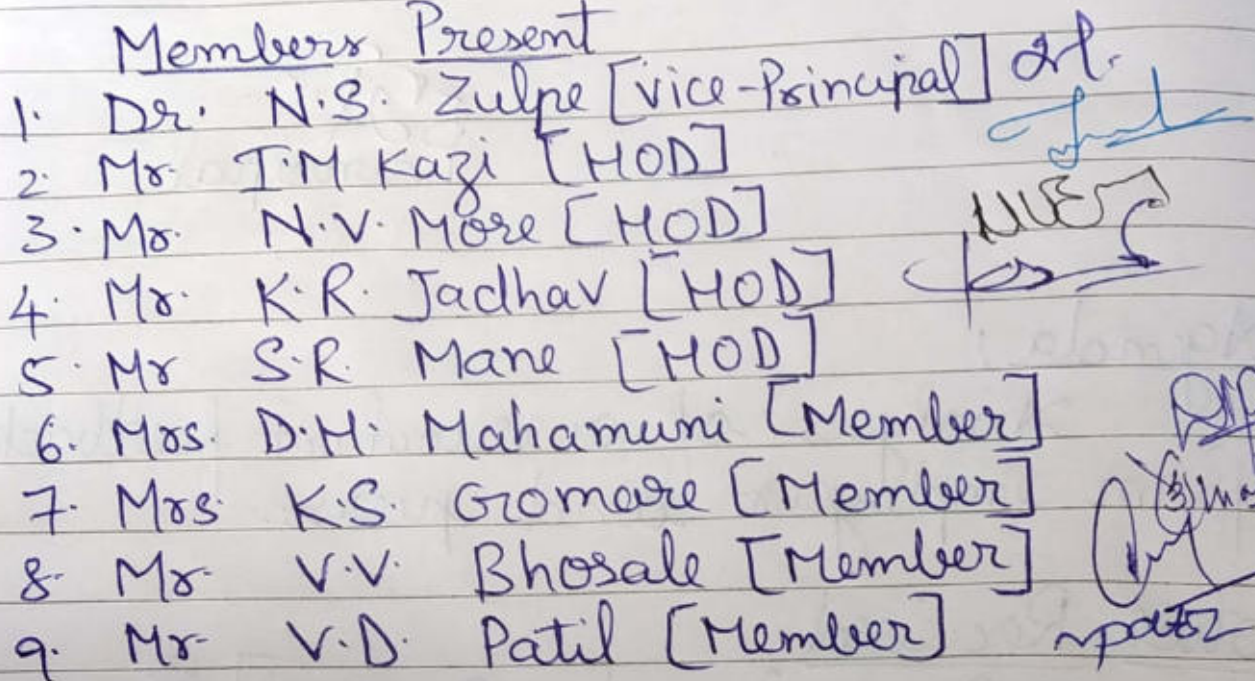 Members Present
1. Dr. N.S. Zulpe [Vice-Principal]
2. Mr. I.M Kazi [HOD]
3. Mr. N.V. More [HOD]
4. Mr. K.R. Jadhav [HOD]
5. Mr S.R. Mane [HOD]
6. Mrs. D.H. Mahamuni [Member]
7. Mrs. K.S. Gomare [Member]
8. Mr. V.V. Bhosale [Member]
9. Mr. V.D. Patil [Member]